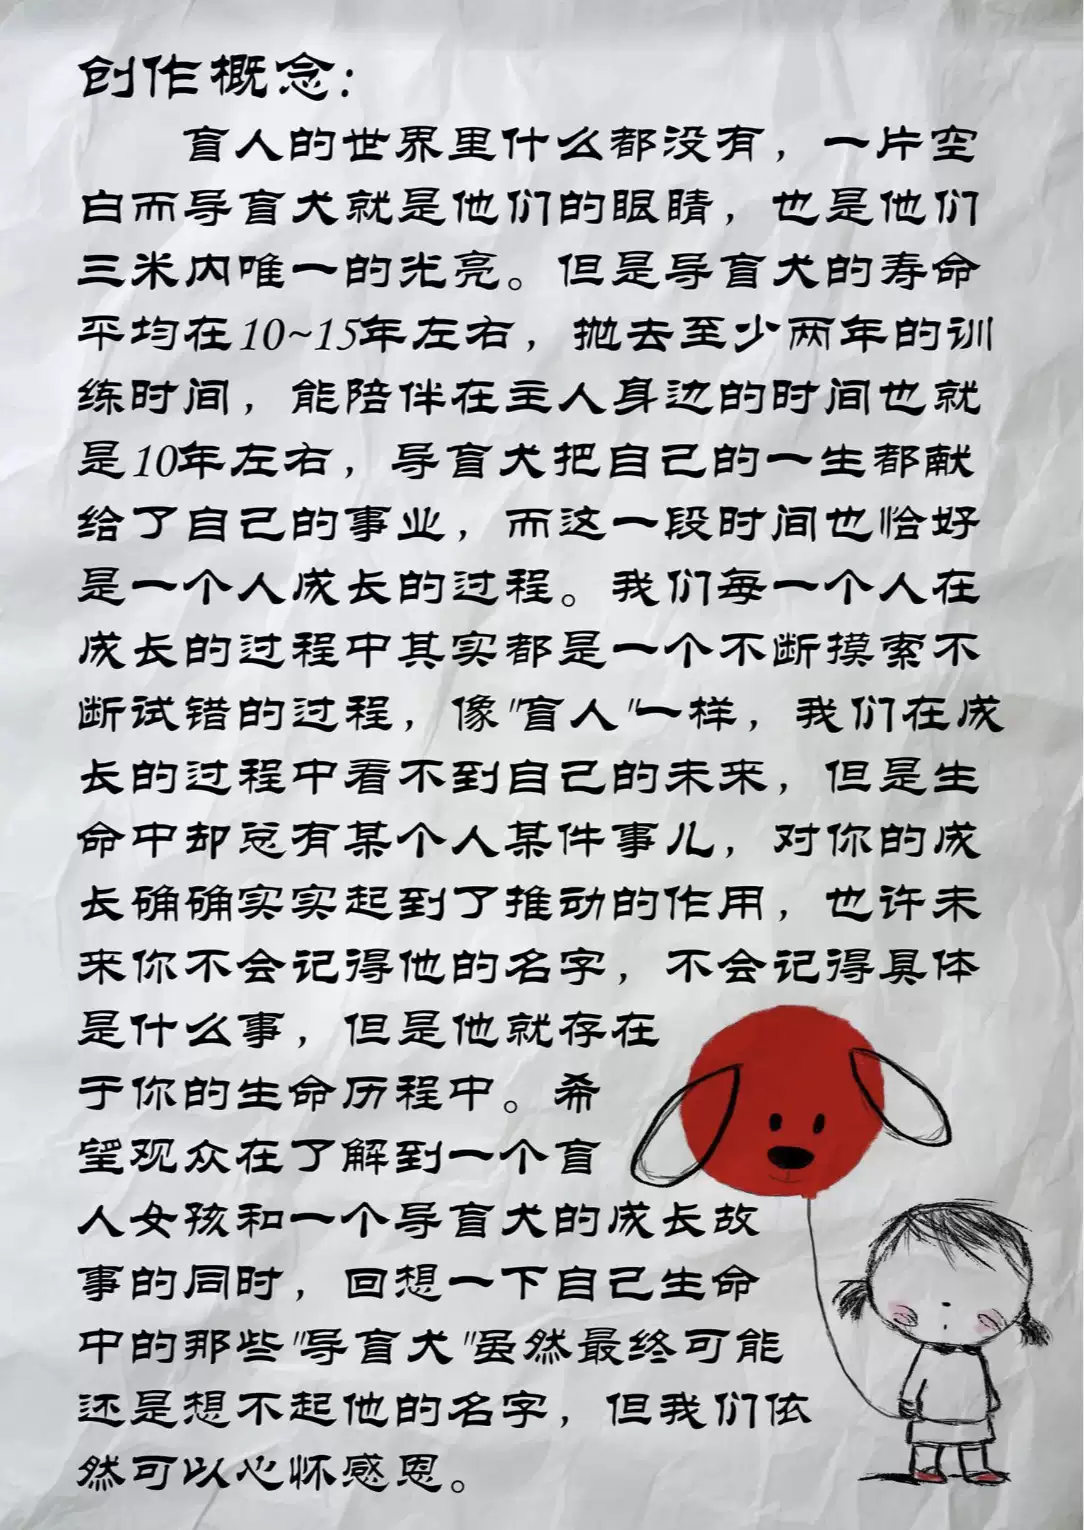 创作概念：
盲人的世界里什么都没有，一片空
白而导盲犬就是他们的眼睛，也是他们
三米内唯一的光亮。但是导盲犬的寿命
平均在10~15年左右，抛去至少两年的训
练时间，能陪伴在主人身边的时间也就
是10年左右，导盲犬把自己的一生都献
给了自己的事业，而这一段时间也恰好
是一个人成长的过程。我们每一个人在
成长的过程中其实都是一个不断摸索不
断试错的过程，像"盲人"一样，我们在成
长的过程中看不到自己的未来，但是生
命中却总有某个人某件事儿，对你的成
长确确实实起到了推动的作用，也许未
来你不会记得他的名字，不会记得具体
是什么事，但是他就存在
于你的生命历程中。希
望观众在了解到一个盲
人女孩和一个导盲犬的成长故
事的同时，回想一下自己生命
中的那些"导盲犬"虽然最终可能
还是想不起他的名字，但我们依
然可以心怀感恩。